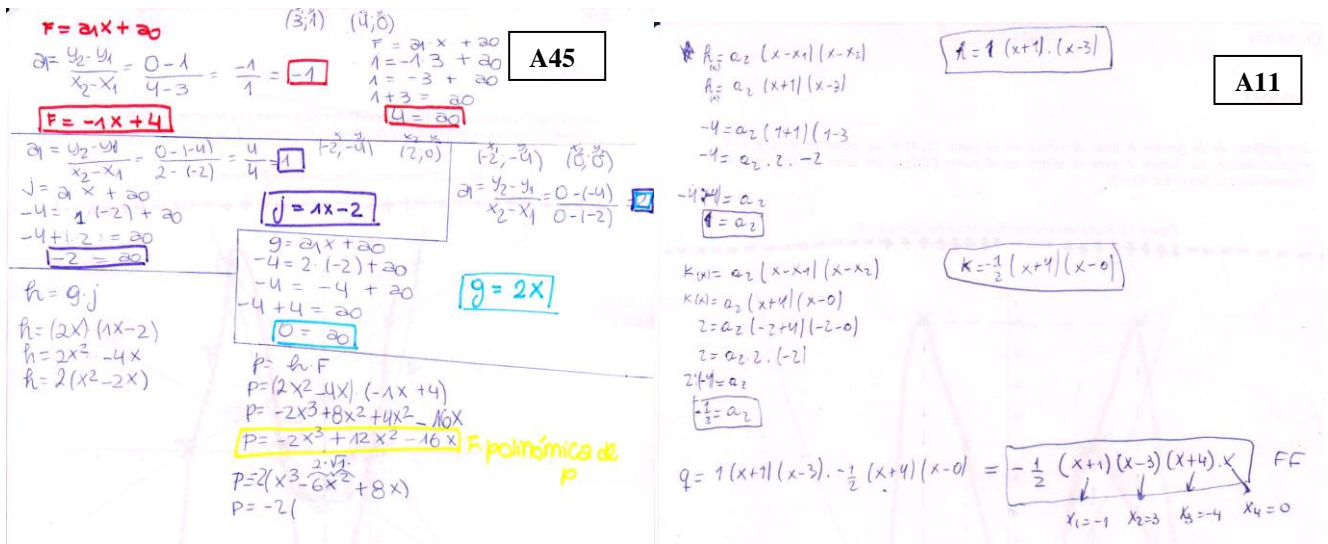 F = a1x + a0
(3;1) (4;0)
a1 = y2-y1 / x2-x1 = 0-1 / 4-3 = -1 / 1 = -1
F = a1·x + a0
1 = -1·3 + a0
1 = -3 + a0
1+3 = a0
4 = a0
A45
F = -1x+4
a1 = y2-y1 / x2-x1 = 0-(-4) / 2-(-2) = 4 / 4 = 1
x1 y1 x2 y2
(-2,-4) (2,0)
j = a1 x + a0
-4 = 1·(-2) + a0
-4+(2) = a0
-2 = a0
j = 1x-2
(-2,-4) (0,0)
a1 = y2-y1 / x2-x1 = 0-(-4) / 0-(-2) = 2
g = a1x + a0
-4 = 2·(-2) + a0
-4 = -4 + a0
-4+4 = a0
0 = a0
g = 2x
h = g·j
h = (2x)·(1x-2)
h = 2x² -4x
h = 2(x²-2x)
p = h·F
p = (2x²-4x)·(-1x+4)
p = -2x³+8x²+4x²-16x
p = -2x³+12x²-16x F. polinómica de p
p = 2(x³-6x²+8x)
p = -2(
h(x) = a2 (x-x1)(x-x2)
h = 1·(x+1).(x-3)
A11
h(x) = a2 (x+1)(x-3)
-4 = a2 (1+1)(1-3
-4 = a2 . 2 . -2
-4:(-4) = a2
1 = a2
K(x) = a2 (x-x1)(x-x2)
K = -1/2 (x+4)(x-0)
K(x) = a2 (x+4)(x-0)
2 = a2 (-2+4)(-2-0)
2 = a2 . 2 . (-2)
2:(-4) = a2
-1/2 = a2
q = 1(x+1)(x-3).-1/2 (x+4)(x-0) = -1/2 (x+1)(x-3)(x+4).x FF
x1=-1 x2=3 x3=-4 x4=0